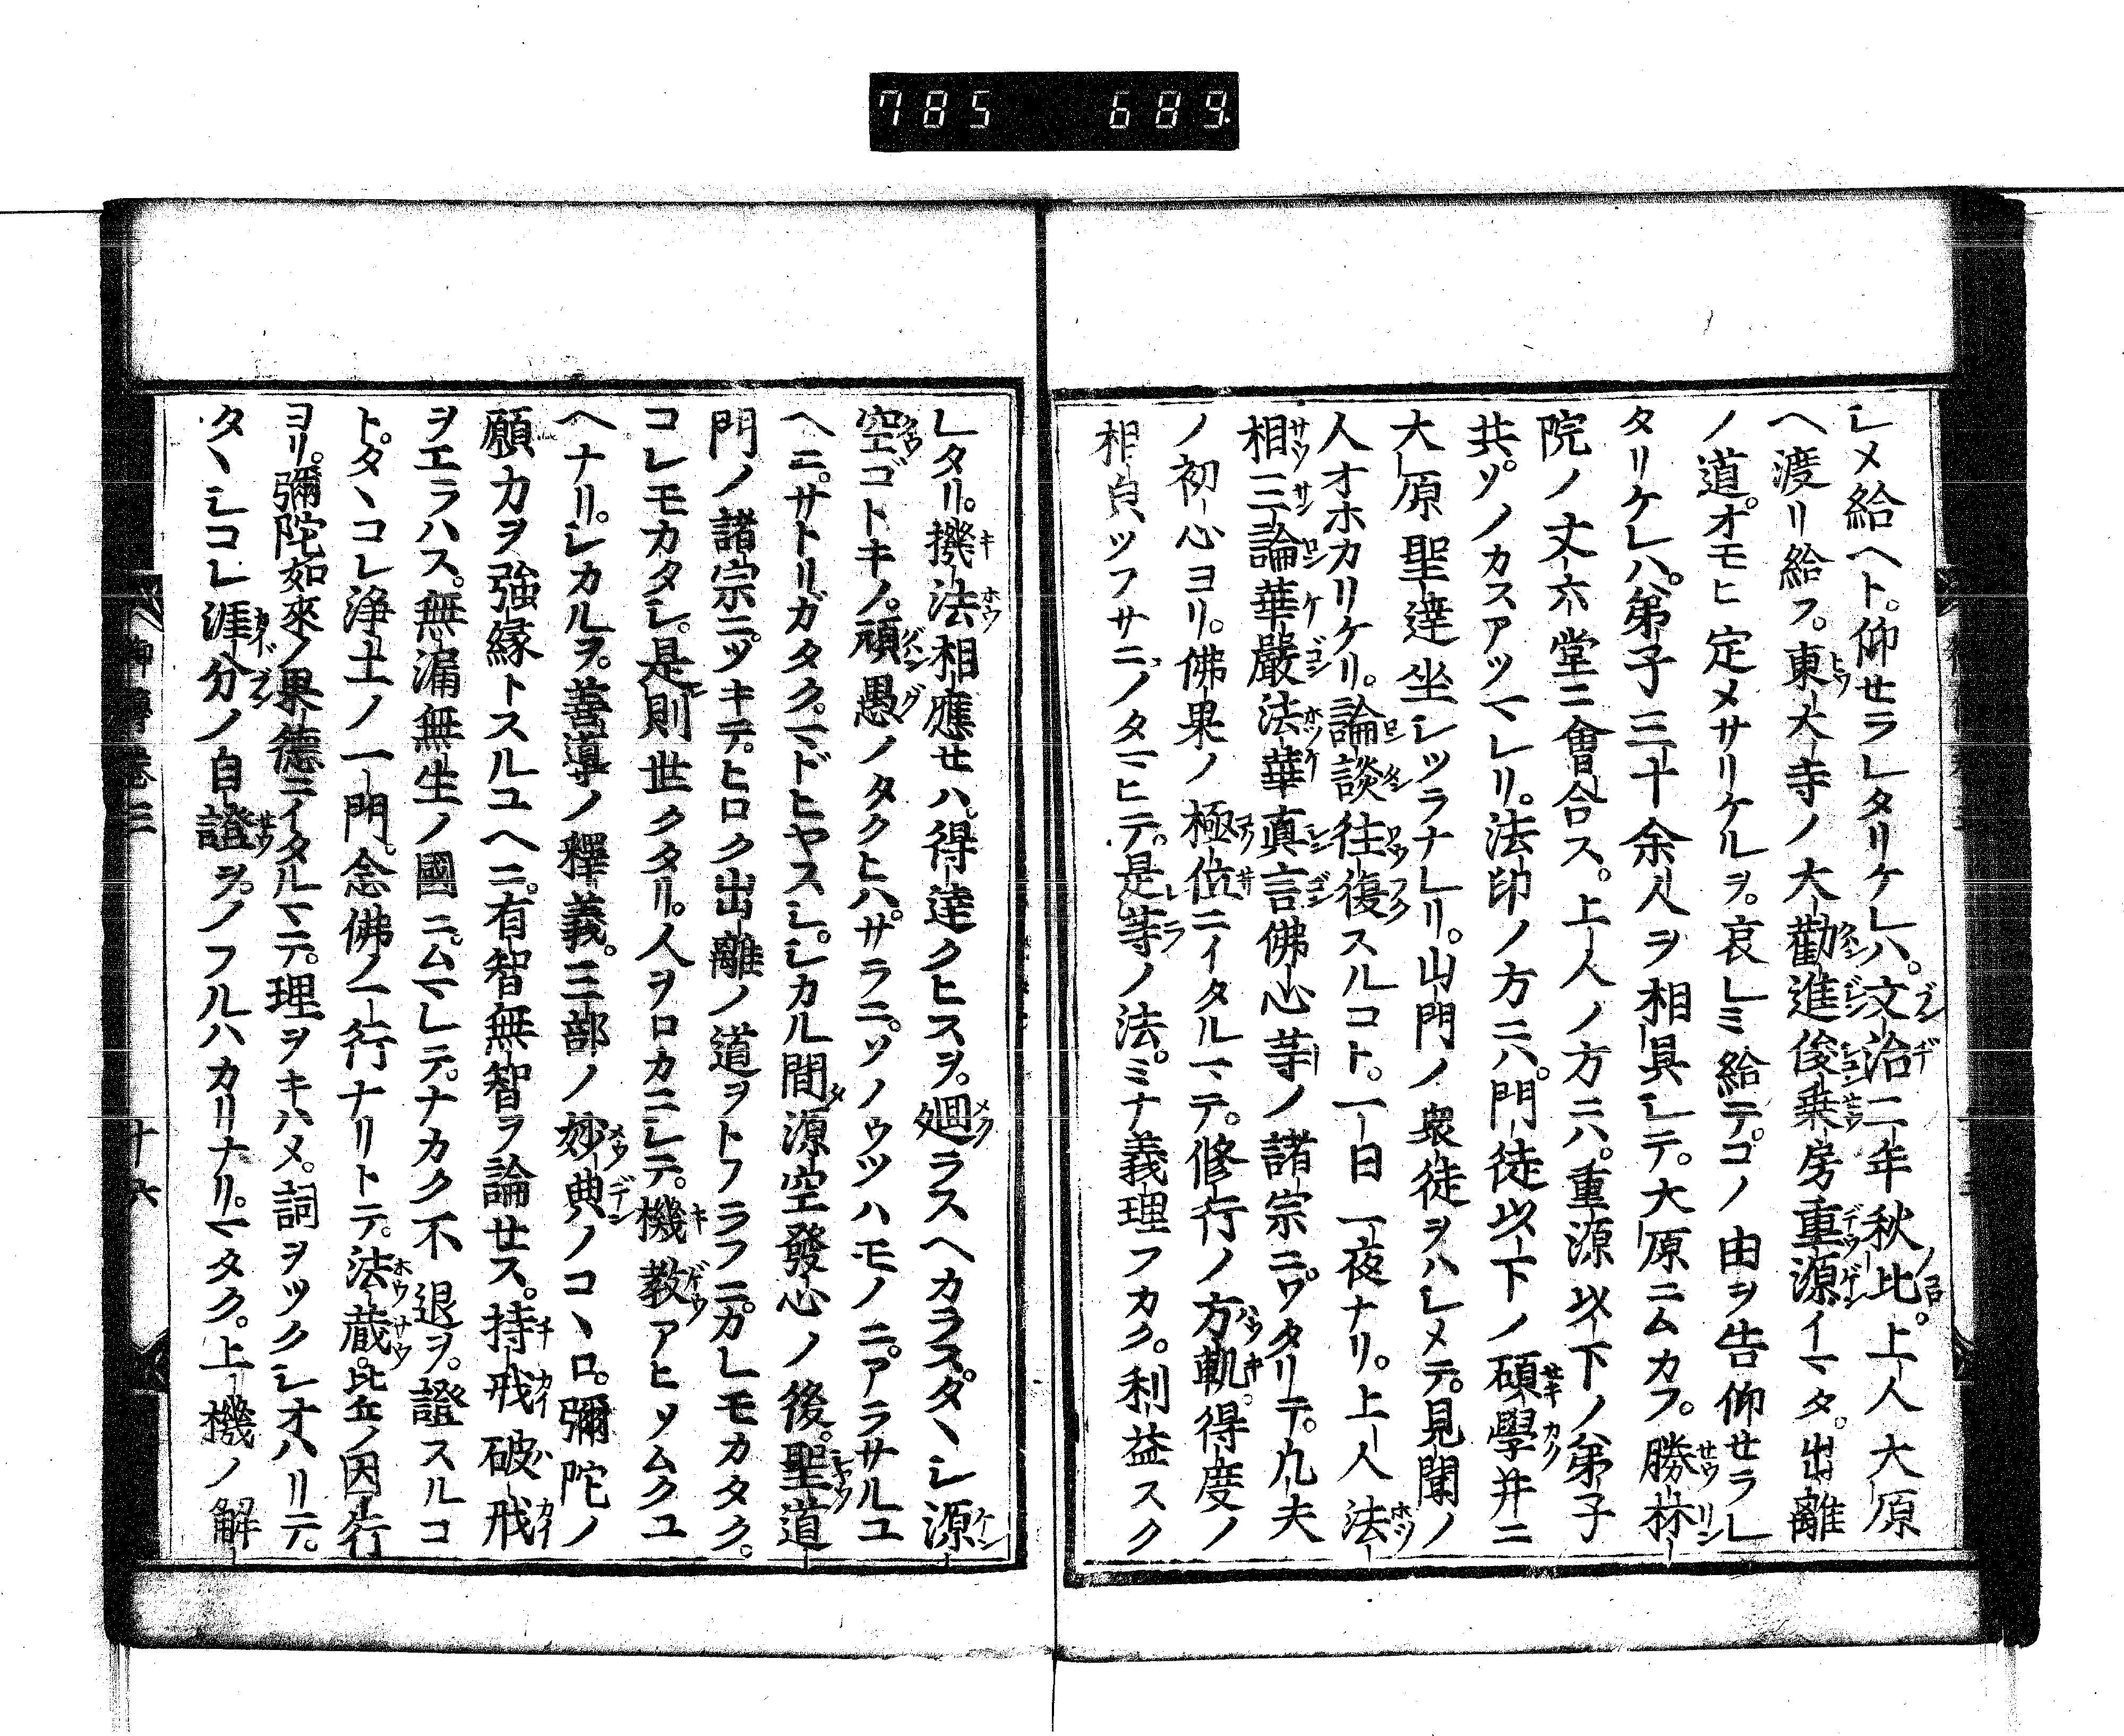 785 689
シメ給ヘト。仰セラレタリケレハ。文治二年秋ノ比。上人大原
ヘ渡リ給フ。東大寺ノ大勸進俊乗房重源。イマタ。出離
ノ道。オモヒ定メサリケルヲ。哀レミ給テ。コノ由ヲ告仰セラレ
タリケレハ。弟子三十余人ヲ相具シテ。大原ニムカフ。勝林
院ノ丈六堂ニ會合ス。上人ノ方ニハ。重源以下ノ弟子
共。ソノカスアツマレリ。法印ノ方ニハ。門徒以下ノ碩學并ニ
大原聖達坐シツラナレリ。山門ノ衆徒ヲハシメテ。見聞ノ
人オホカリケリ。論談往復スルコト。一日一夜ナリ。上人法
相三論華嚴法華真言佛心等ノ諸宗ニワタリテ。凡夫
ノ初心ヨリ。佛果ノ極位ニイタルマテ。修行ノ方軌。得度ノ
相皃ツフサニノタマヒテ。是等ノ法。ミナ義理フカク。利益スク
レタリ。機法相應セハ。得達クヒスヲ。廻ラスヘカラス。タヽシ源
空ゴトキノ。頑愚ノタクヒハ。サラニ。ソノウツハモノニ。アラサルユ
ヘニ。サトリガタク。マドヒヤスシ。シカル間。源空發心ノ後。聖道
門ノ諸宗ニ。ツキテ。ヒロク出離ノ道ヲトフラフニ。カレモカタク。
コレモカタシ。是則世クタリ。人ヲロカニシテ。機教アヒソムクユ
ヘナリ。シカルヲ。善導ノ釋義。三部ノ妙典ノコヽロ。彌陀ノ
願力ヲ強縁トスルユヘニ。有智無智ヲ論セス。持戒破戒
ヲエラハス。無漏無生ノ國ニ。ムマレテ。ナカク不退ヲ。證スルコ
ト。タヽコレ浄土ノ一門。念佛ノ一行ナリトテ。法蔵比丘ノ因行
ヨリ。彌陀如來ノ果德ニイタルマテ。理ヲキハメ。詞ヲツクシオハリテ。
タヽシコレ涯分ノ自證ヲ。ノフルハカリナリ。マタク。上機ノ解
傳卷三 十六